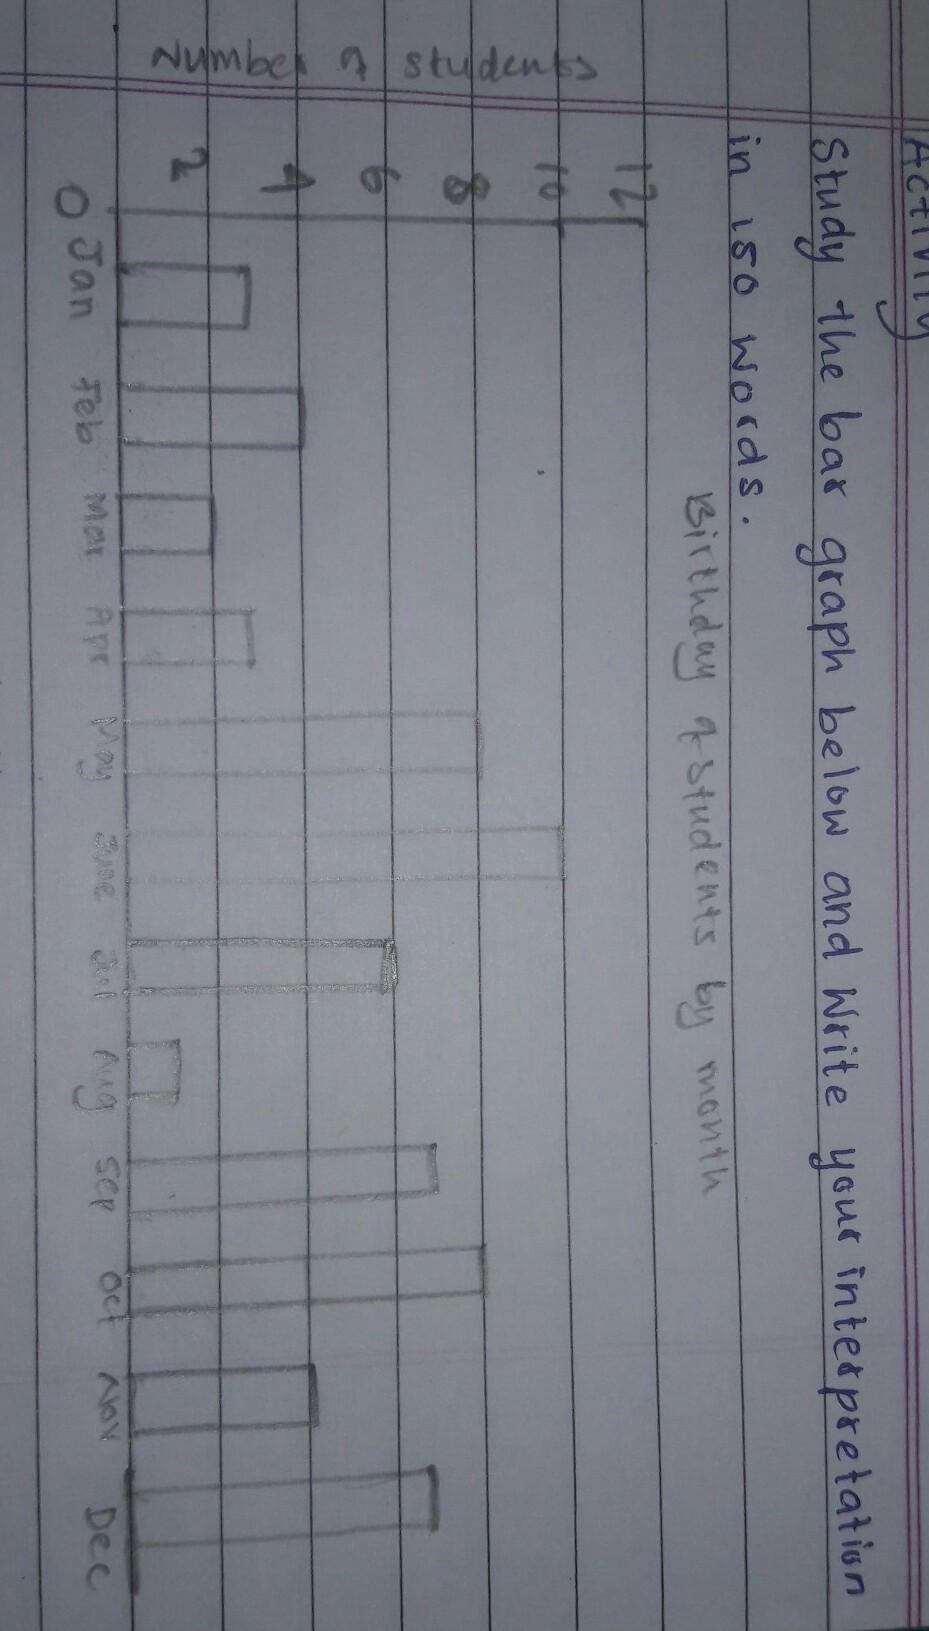 Activity
Study the bar graph below and Write your interpretation
in 150 words.
Birthday of students by month
Number of students
12
10
8
6
4
2
0
Jan Feb Mar Apr May June Jul Aug Sep Oct Nov Dec